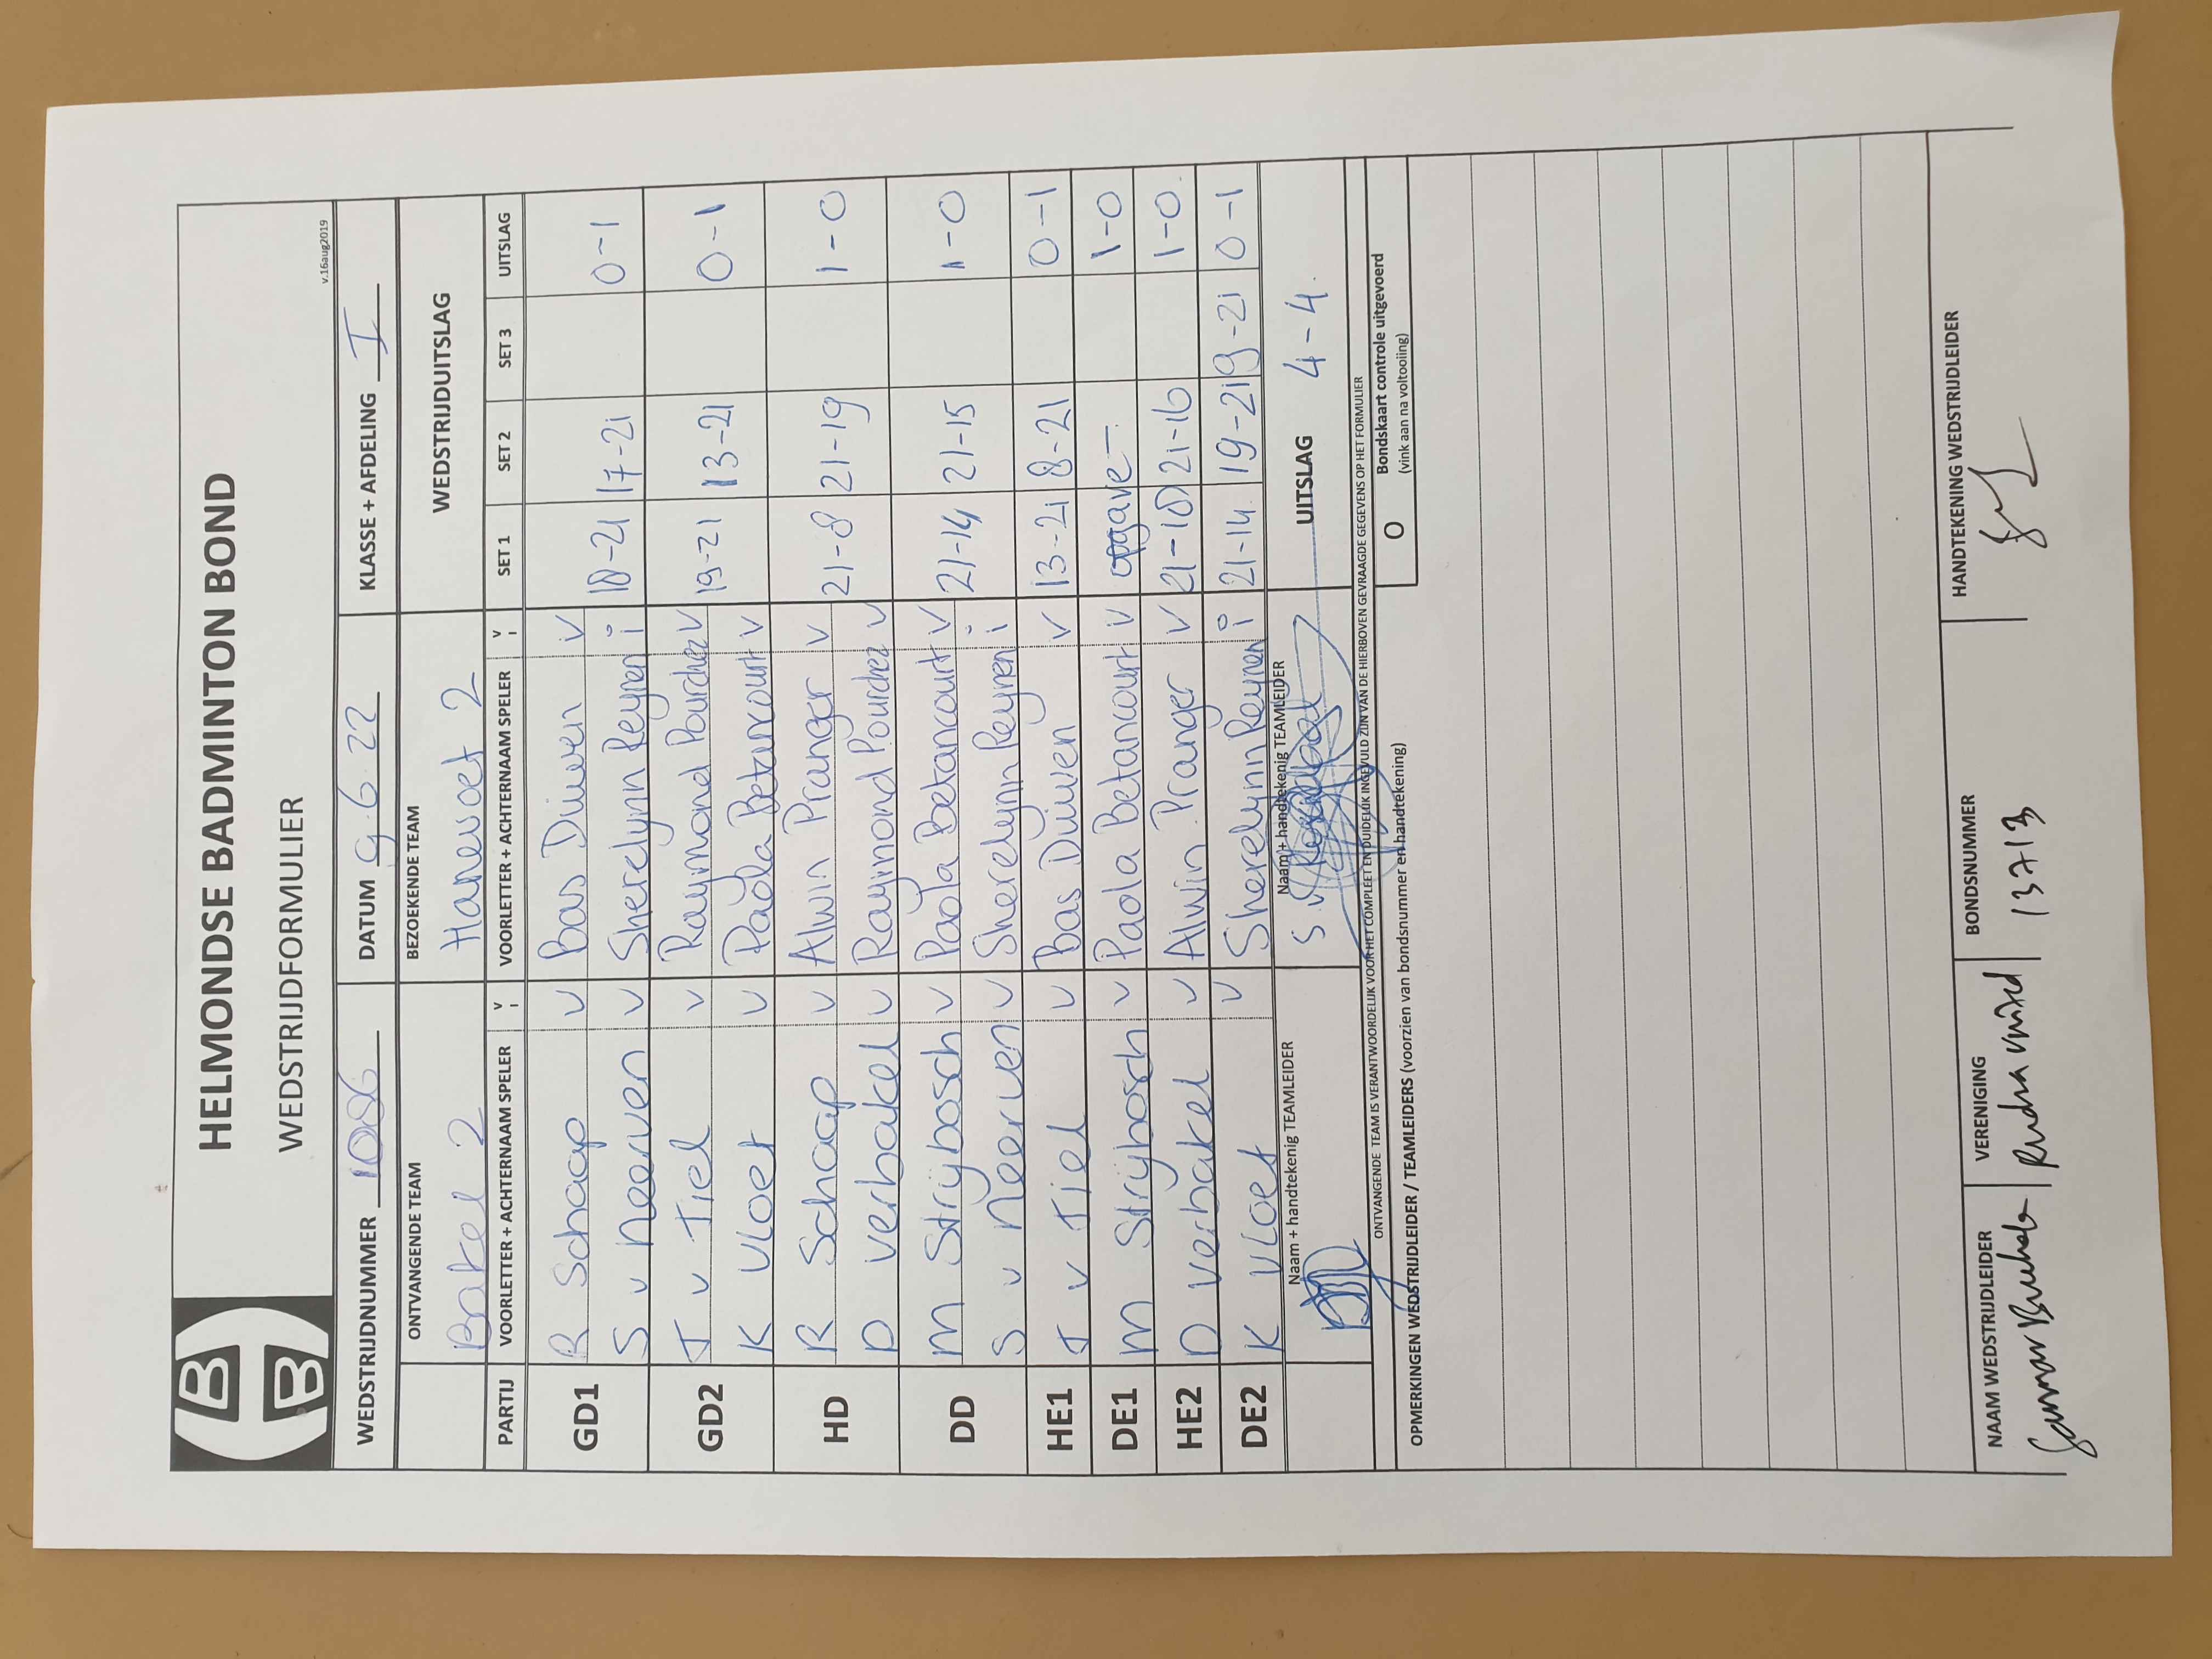 HELMONDSE BADMINTON BOND
WEDSTRIJDFORMULIER
v.16aug2019
WEDSTRIJDNUMMER 1086 DATUM 9.6.22 KLASSE + AFDELING I
ONTVANGENDE TEAM BEZOEKENDE TEAM WEDSTRIJDUITSLAG
Bakel 2 Hanevoet 2
PARTIJ VOORLETTER + ACHTERNAAM SPELER V I VOORLETTER + ACHTERNAAM SPELER V I SET 1 SET 2 SET 3 UITSLAG
GD1 R Schaap v Bas Duiven v
S v Neerven v Sherelynn Reynen i 18-21 17-21 0-1
GD2 J v Tiel v Raymond Pourchez v
K Vloet v Paola Betancourt v 19-21 13-21 0-1
HD R Schaap v Alwin Pranger v
D Verbakel v Raymond Pourchez v 21-8 21-19 1-0
DD M Strijbosch v Paola Betancourt v
S v Neerven v Sherelynn Reynen i 21-14 21-15 1-0
HE1 J v Tiel v Bas Duiven v 13-21 8-21 0-1
DE1 M Strijbosch v Paola Betancourt v opgave - 1-0
HE2 D Verbakel v Alwin Pranger v 21-18 21-16 1-0
DE2 K Vloet v Sherelynn Reynen i 21-14 19-21 19-21 0-1
Naam + handtekenig TEAMLEIDER Naam + handtekenig TEAMLEIDER
UITSLAG 4-4
ONTVANGENDE TEAM IS VERANTWOORDELIJK VOOR HET COMPLEET EN DUIDELIJK INGEVULD ZIJN VAN DE HIERBOVEN GEVRAAGDE GEGEVENS OP HET FORMULIER
O Bondskaart controle uitgevoerd
(vink aan na voltooiing)
OPMERKINGEN WEDSTRIJDLEIDER / TEAMLEIDERS (voorzien van bondsnummer en handtekening)
NAAM WEDSTRIJDLEIDER VERENIGING BONDSNUMMER HANDTEKENING WEDSTRIJDLEIDER
13713